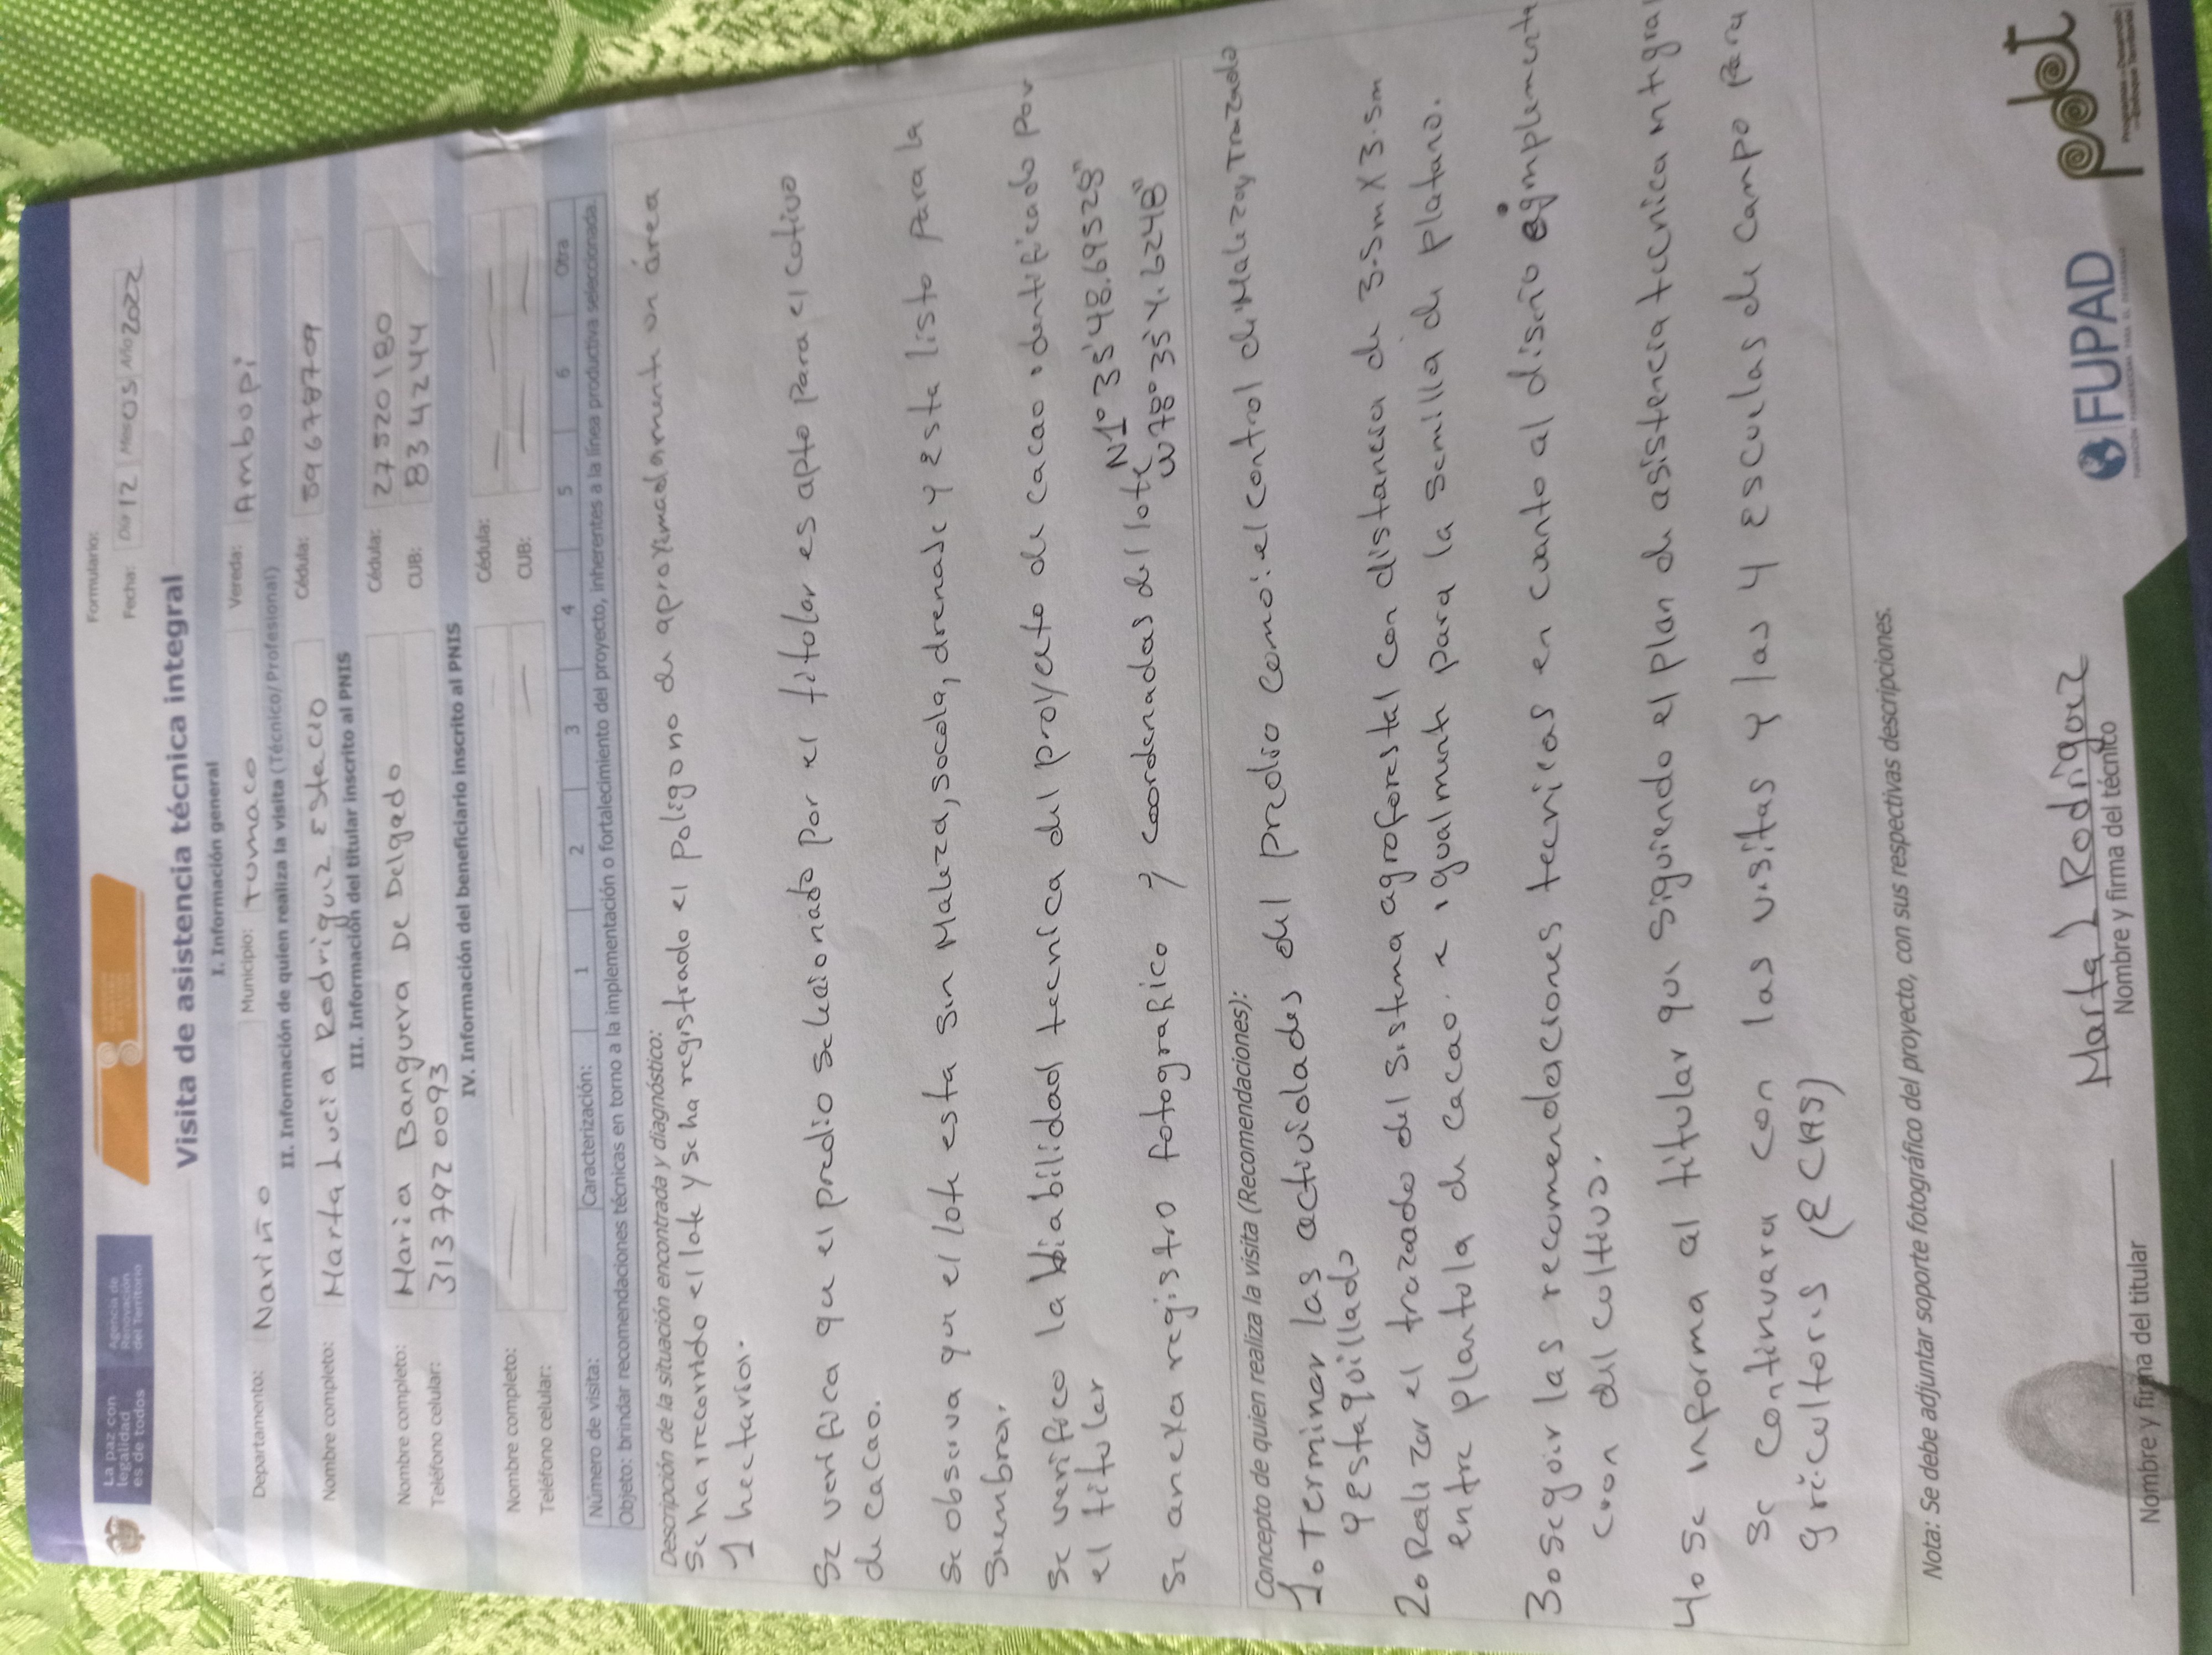 La paz con
legalidad
es de todos
Agencia de
Renovación
del Territorio
Formulario:
Fecha: Día 12 Mes 05 Año 2022
Visita de asistencia técnica integral
I. Información general
Departamento: Nariño Municipio: Tumaco Vereda: Ambopi
II. Información de quien realiza la visita (Técnico/Profesional)
Nombre completo: Marta Lucia Rodriguez Estacio Cédula: 59678709
III. Información del titular inscrito al PNIS
Nombre completo: Maria Banguera De Delgado Cédula: 27520180
Teléfono celular: 3137920093 CUB: 8342244
IV. Información del beneficiario inscrito al PNIS
Nombre completo: Cédula:
Teléfono celular: CUB:
Número de visita: Caracterización: 1 2 3 4 5 6 Otra
Objeto: brindar recomendaciones técnicas en torno a la implementación o fortalecimiento del proyecto, inherentes a la línea productiva seleccionada.
Descripción de la situación encontrada y diagnóstico:
Se ha rrecorrido el lote y se ha registrado el poligono de aproximadamente un área
1 hectaria.
Se verifica que el predio seleccionado por el titular es apto para el cotivo
de cacao.
Se observa que el lote esta sin Maleza, socola, drenade y Esta listo para la
Siembra.
Se verifico la viabilidad tecnica del proyecto de cacao identificado por
el titular
Se anexa registro fotografico y coordenadas del lote N1° 35' 48.69528"
W78° 35' 4.6248"
Concepto de quien realiza la visita (Recomendaciones):
1o Terminar las actividades del predio como: el control de Maleza y Trazado
y Estaquillado
2o Realizar el trazado del sistema agroforestal con distancia de 3.5m X 3.5m
entre plantula de cacao. e igualmente para la semilla de platano.
3o seguir las recomendaciones tecnicas en cuanto al diseño e implementa
cion del cultivo.
4o se informa al titular que siguiendo el plan de asistencia tecnica integral
se continuara con las visitas y las 4 Escuelas de campo para
gricultores (ECAS)
Nota: Se debe adjuntar soporte fotográfico del proyecto, con sus respectivas descripciones.
Marta L Rodriguez
Nombre y firma del titular
Nombre y firma del técnico
FUPAD
pdet